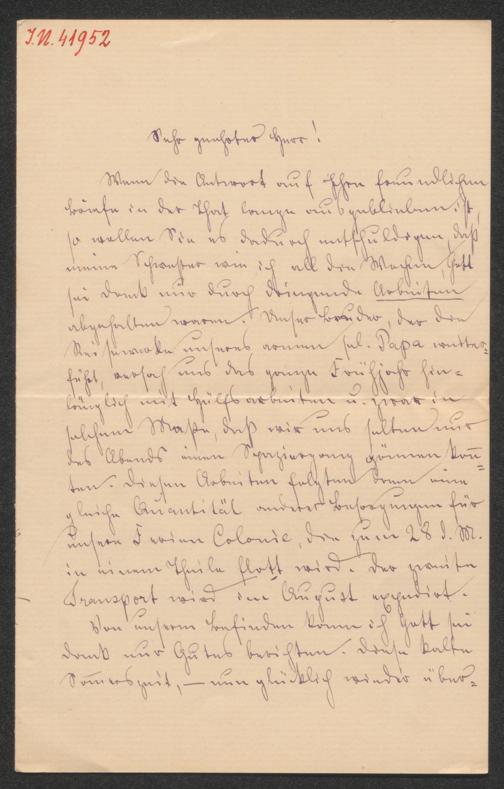 J.N. 41952
Sehr geehrter Herr!
Wenn die Antwort auf Ihre freundlichen
Briefe in der That lange ausgeblieben ist,
so wollen Sie es dadurch entschuldigen, daß
meine Schwester wie ich all die Wochen, Gott
sei Dank nur durch dringende Arbeiten
abgehalten waren. Unser Bruder, der die
unseres armen sel. Papa weiter-
führt, versah uns das ganze Frühjahr hin-
länglich mit Hülfsarbeiten u. zwar in
solchem Maße, daß wir uns selten nur
des Abends einen Spaziergang gönnen kon̄-
ten. Diesen Arbeiten folgten dann eine
gleiche Quantität anderer Besorgungen für
unsere Ferien Colonie, die zum 28 d. M.
in einem Theile flott wird. Der zweite
Transport wird im August expedirt.
Von unserm Befinden kann ich Gott sei
dank nur Gutes berichten. Diese kalte
Som̄erszeit, – nun glücklich wieder über-